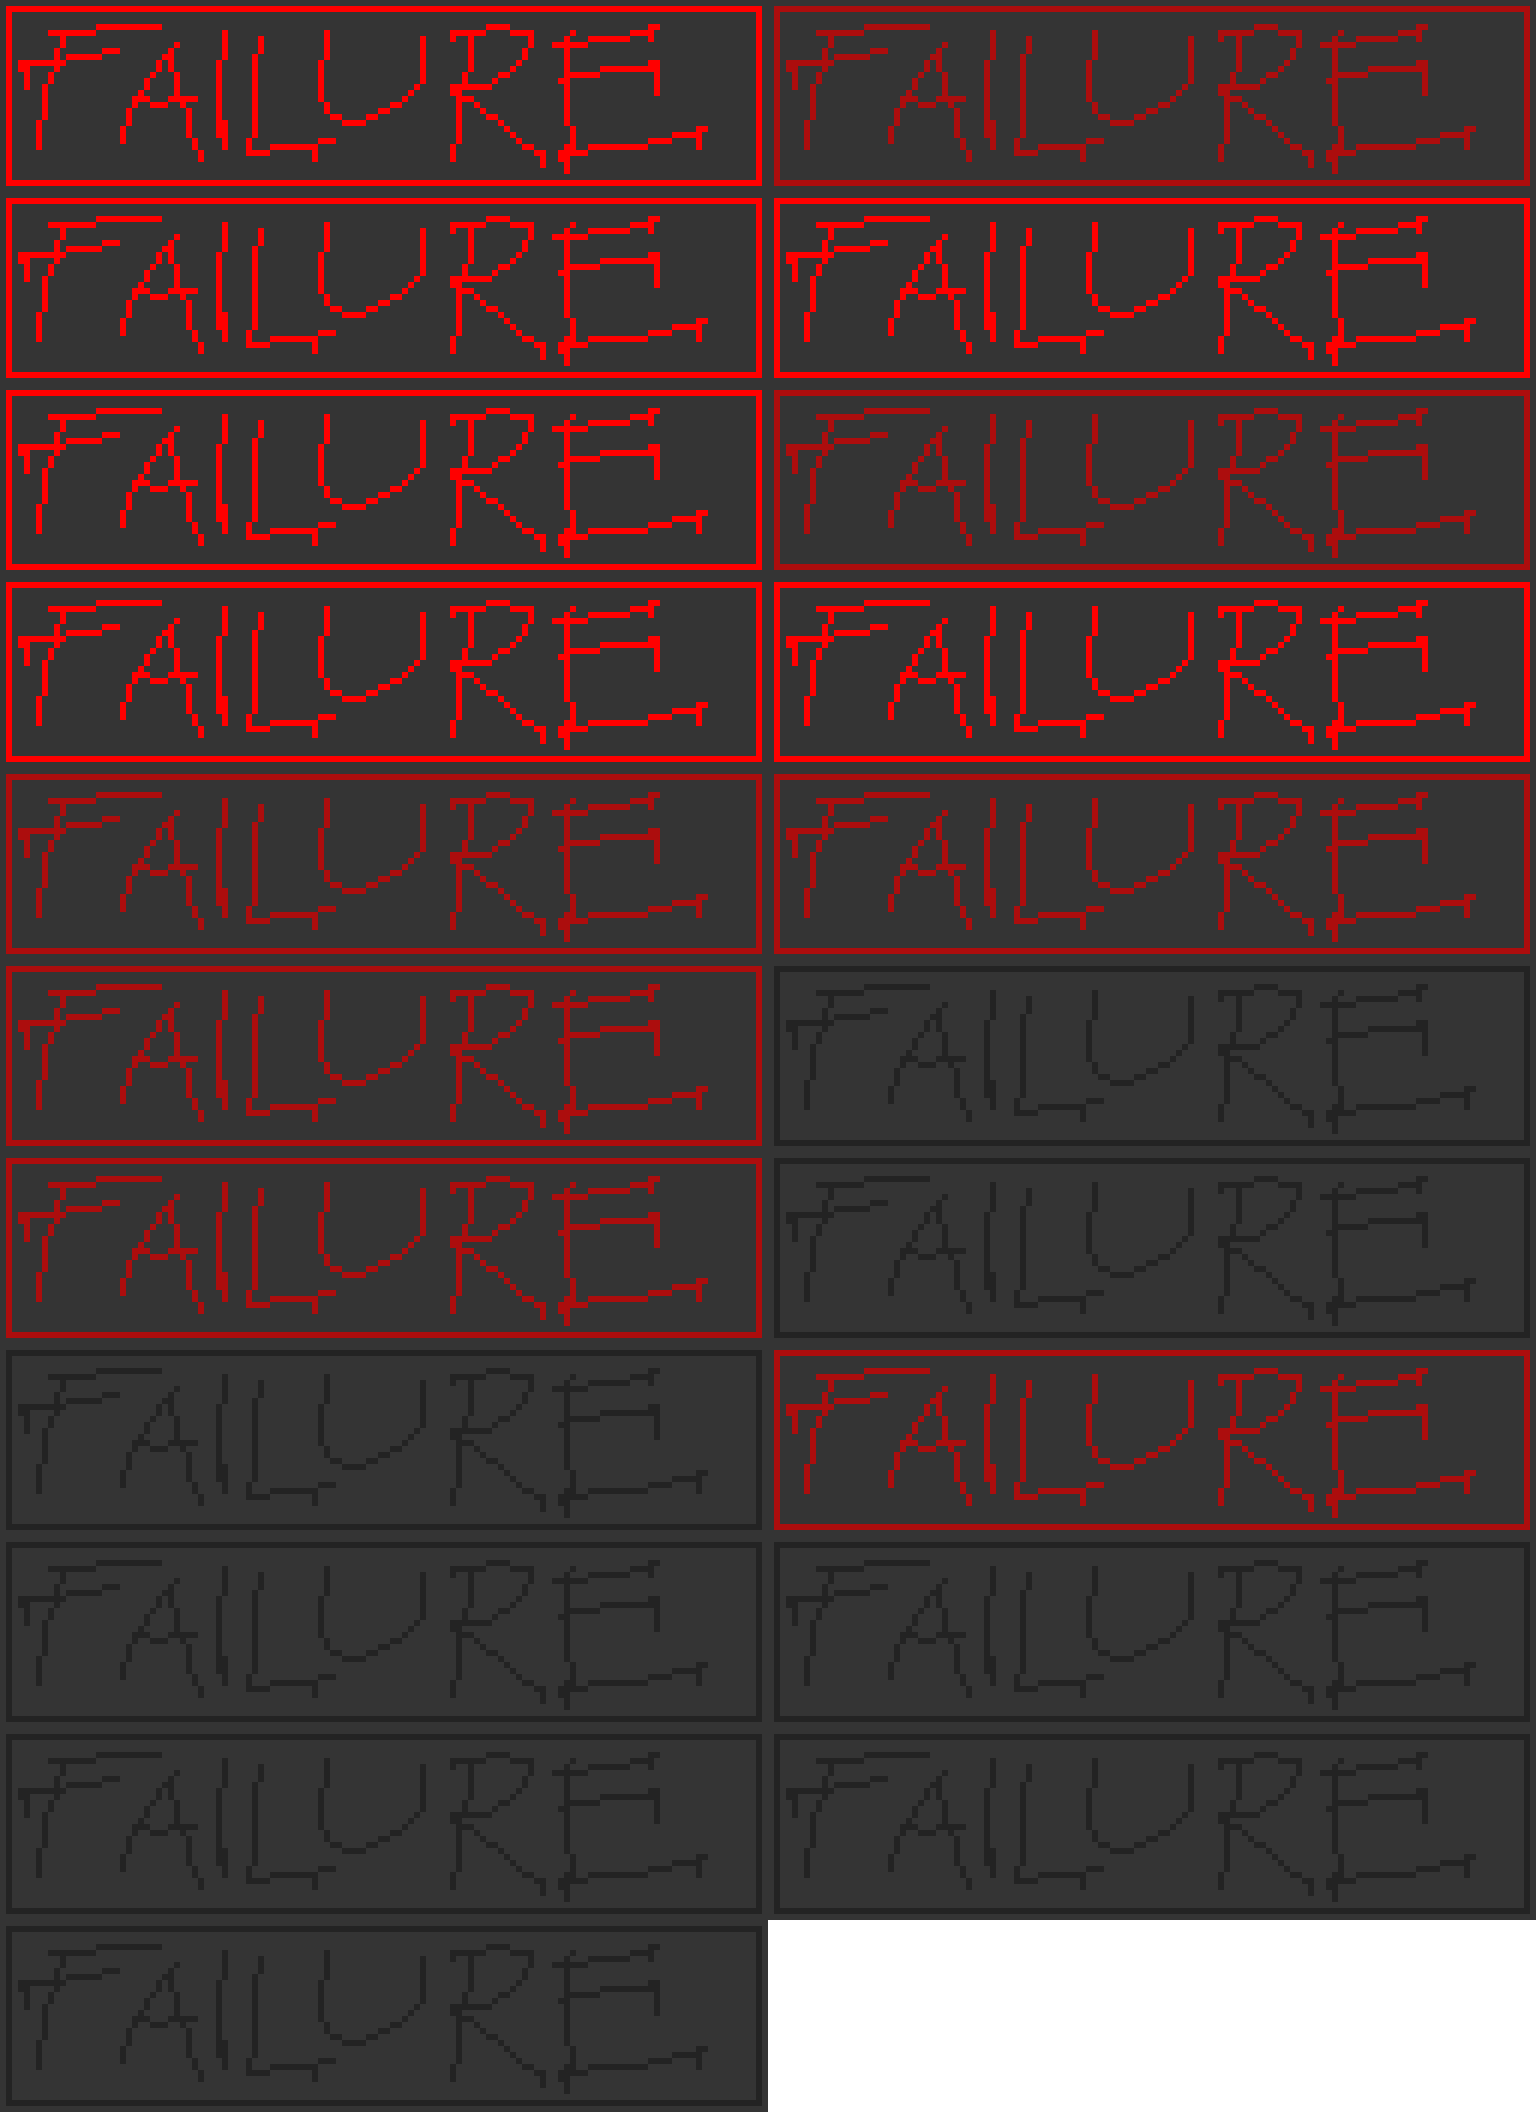 FAILURE FAILURE
FAILURE FAILURE
FAILURE FAILURE
FAILURE FAILURE
FAILURE FAILURE
FAILURE FAILURE
FAILURE FAILURE
FAILURE FAILURE
FAILURE FAILURE
FAILURE FAILURE
FAILURE